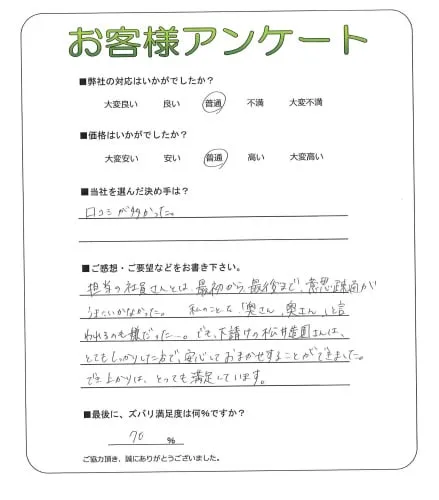 お客様アンケート
■弊社の対応はいかがでしたか？
大変良い 良い 普通 不満 大変不満
■価格はいかがでしたか？
大変安い 安い 普通 高い 大変高い
■当社を選んだ決め手は？
口コミが多かった。
■ご感想・ご要望などをお書き下さい。
担当の社員さんとは、最初から、最後まで、意思疎通が
うまくいかなかった。 私のことを、「奥さん、奥さん。」と言
われるのも嫌だった…。でも、下請けの松井造園さんは、
とてもしっかりした方で、安心しておまかせすることができました。
でき上がりは、とっても満足しています。
■最後に、ズバリ満足度は何％ですか？
70 ％
ご協力頂き、誠にありがとうございました。